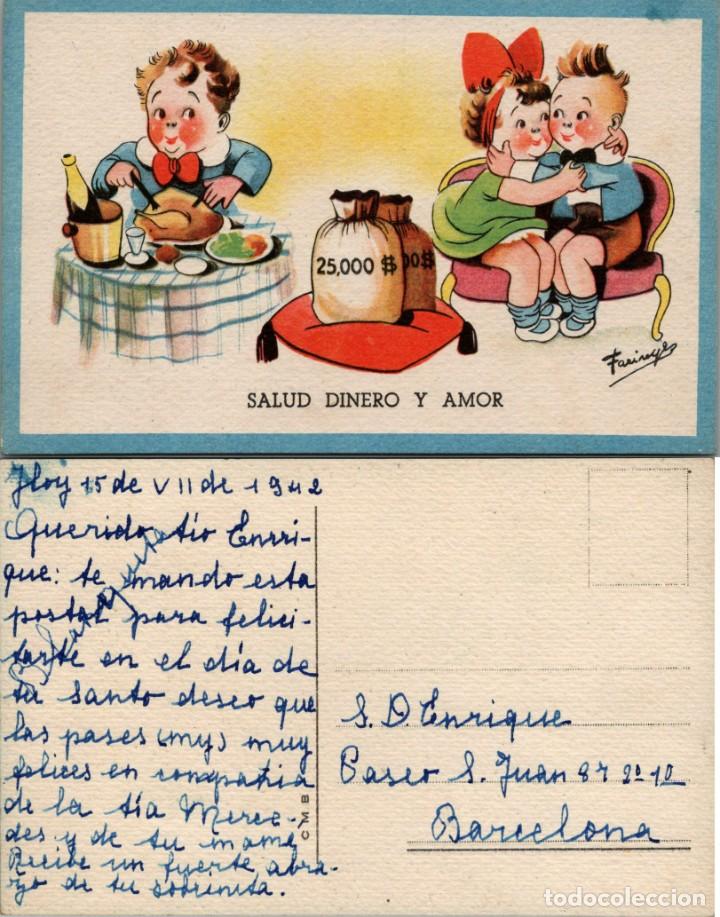 25,000 $
00$
SALUD DINERO Y AMOR
Hoy 15 de VII de 1942
Querido tío Enrri-
que: te mando esta
postal para felici-
tarte en el día de
tu santo deseo que
las pases (my) muy
felices en compañia
de la tía Merce-
des y de tu mamá
Recibe un fuerte abra-
zo de tu sobrinita.
CMB
S. D. Enrique
Paseo S. Juan 87 2º 1º
Barcelona
todocoleccion